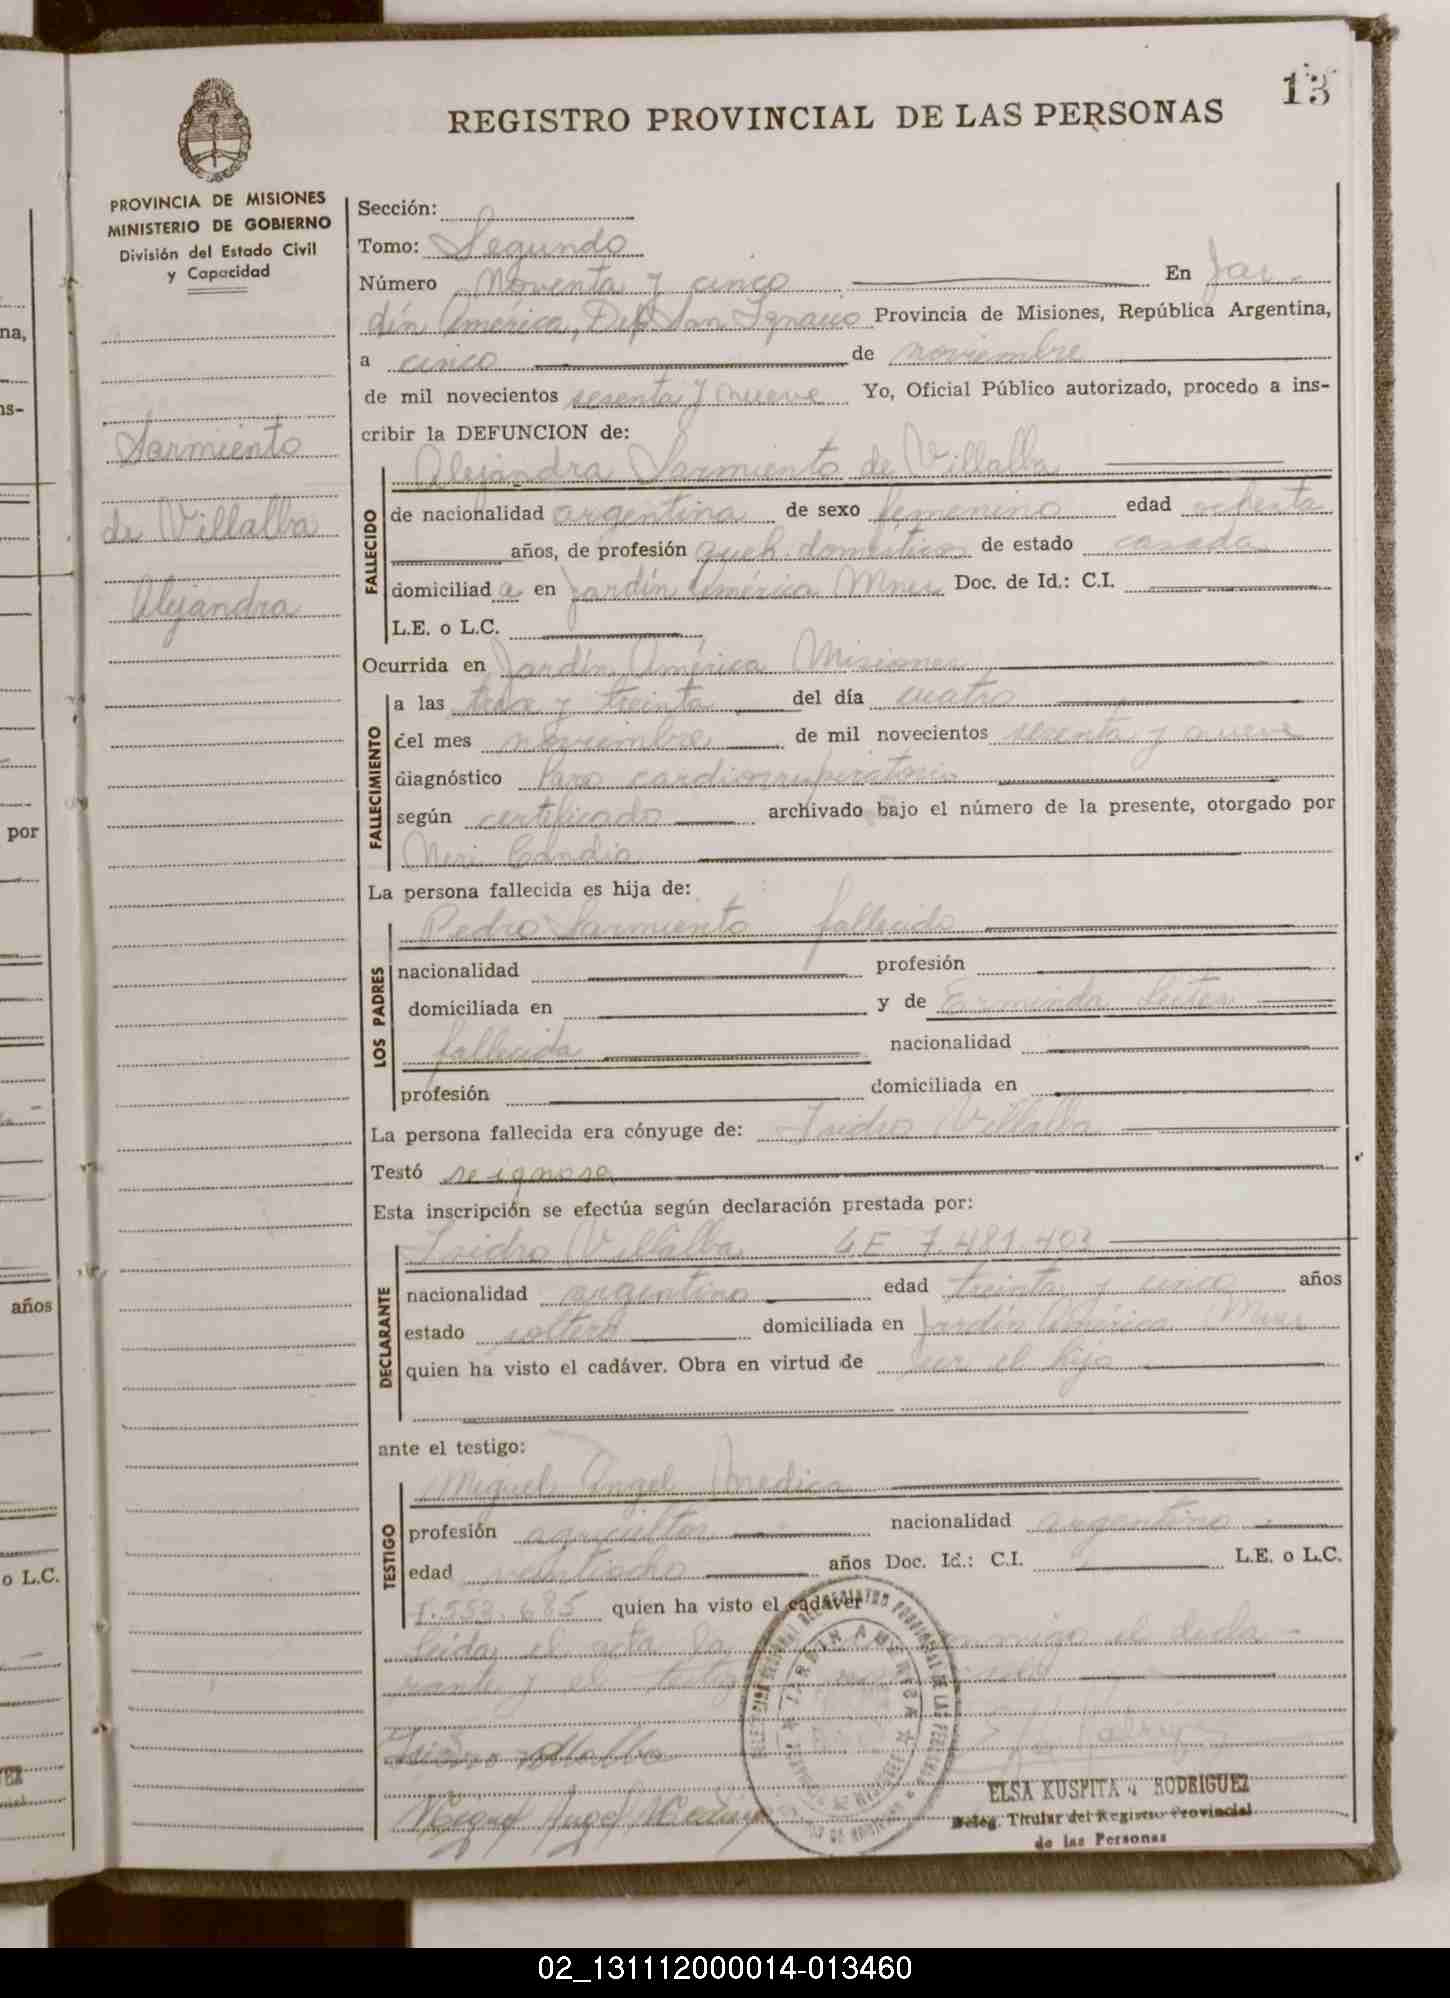 13
REGISTRO PROVINCIAL DE LAS PERSONAS
PROVINCIA DE MISIONES
MINISTERIO DE GOBIERNO
División del Estado Civil
y Capacidad
Sarmiento
de Villalba
Alejandra
Sección:
Tomo: Segundo
Número Noventa y cinco En Jar-
dín América, Dep. San Ignacio Provincia de Misiones, República Argentina,
a cinco de noviembre
de mil novecientos sesenta y nueve Yo, Oficial Público autorizado, procedo a ins-
cribir la DEFUNCION de:
Alejandra Sarmiento de Villalba
FALLECIDO
de nacionalidad argentina de sexo femenino edad ochenta
años, de profesión queh. domésticos de estado casada
domiciliad a en Jardín América Mnes Doc. de Id.: C.I.
L.E. o L.C.
Ocurrida en Jardín América Misiones
FALLECIMIENTO
a las tres y treinta del día cuatro
del mes noviembre de mil novecientos sesenta y nueve
diagnóstico Paro cardiorrespiratorio
según certificado archivado bajo el número de la presente, otorgado por
Neri Candia
La persona fallecida es hija de:
LOS PADRES
Pedro Sarmiento fallecido
nacionalidad profesión
domiciliada en y de Erminda
fallecida nacionalidad
profesión domiciliada en
La persona fallecida era cónyuge de: Isidro Villalba
Testó se ignora
Esta inscripción se efectúa según declaración prestada por:
DECLARANTE
Isidro Villalba L E 7.481.403
nacionalidad argentino edad treinta y cinco años
estado soltero domiciliada en Jardín América Mnes
quien ha visto el cadáver. Obra en virtud de ser el hijo
ante el testigo:
TESTIGO
Miguel Angel Medina
profesión agricultor nacionalidad argentino
edad veintiocho años Doc. Id.: C.I. L.E. o L.C.
7.553.685 quien ha visto el cadáver
Leida el acta la conmigo el decla-
rante y el testigo
Isidro Villalba
Miguel Angel Medina
JARDIN AMERICA
ELSA KUSPITA RODRIGUEZ
Deleg. Titular del Registro Provincial
de las Personas
na,
ns-
por
años
o L.C.
02_131112000014-013460